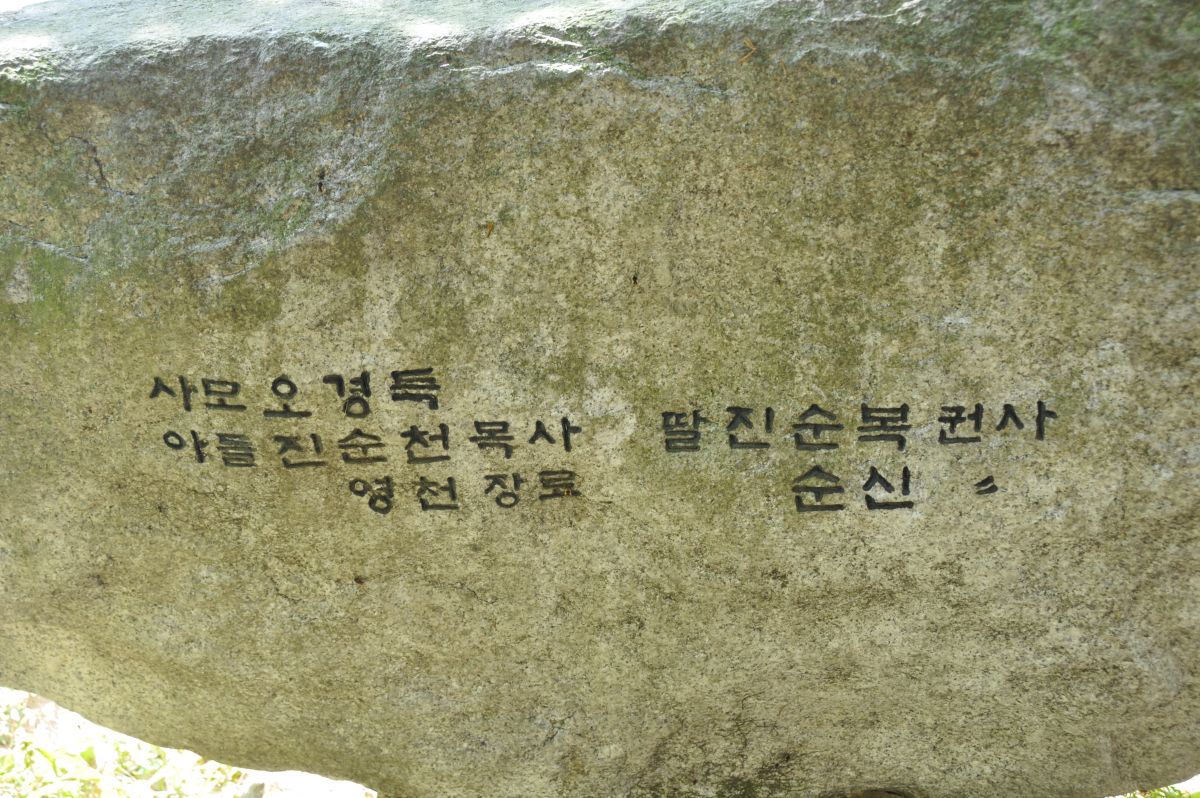 사모 오경득
아들 진순천 목사
영천 장로
딸 진순복 권사
순신 〃